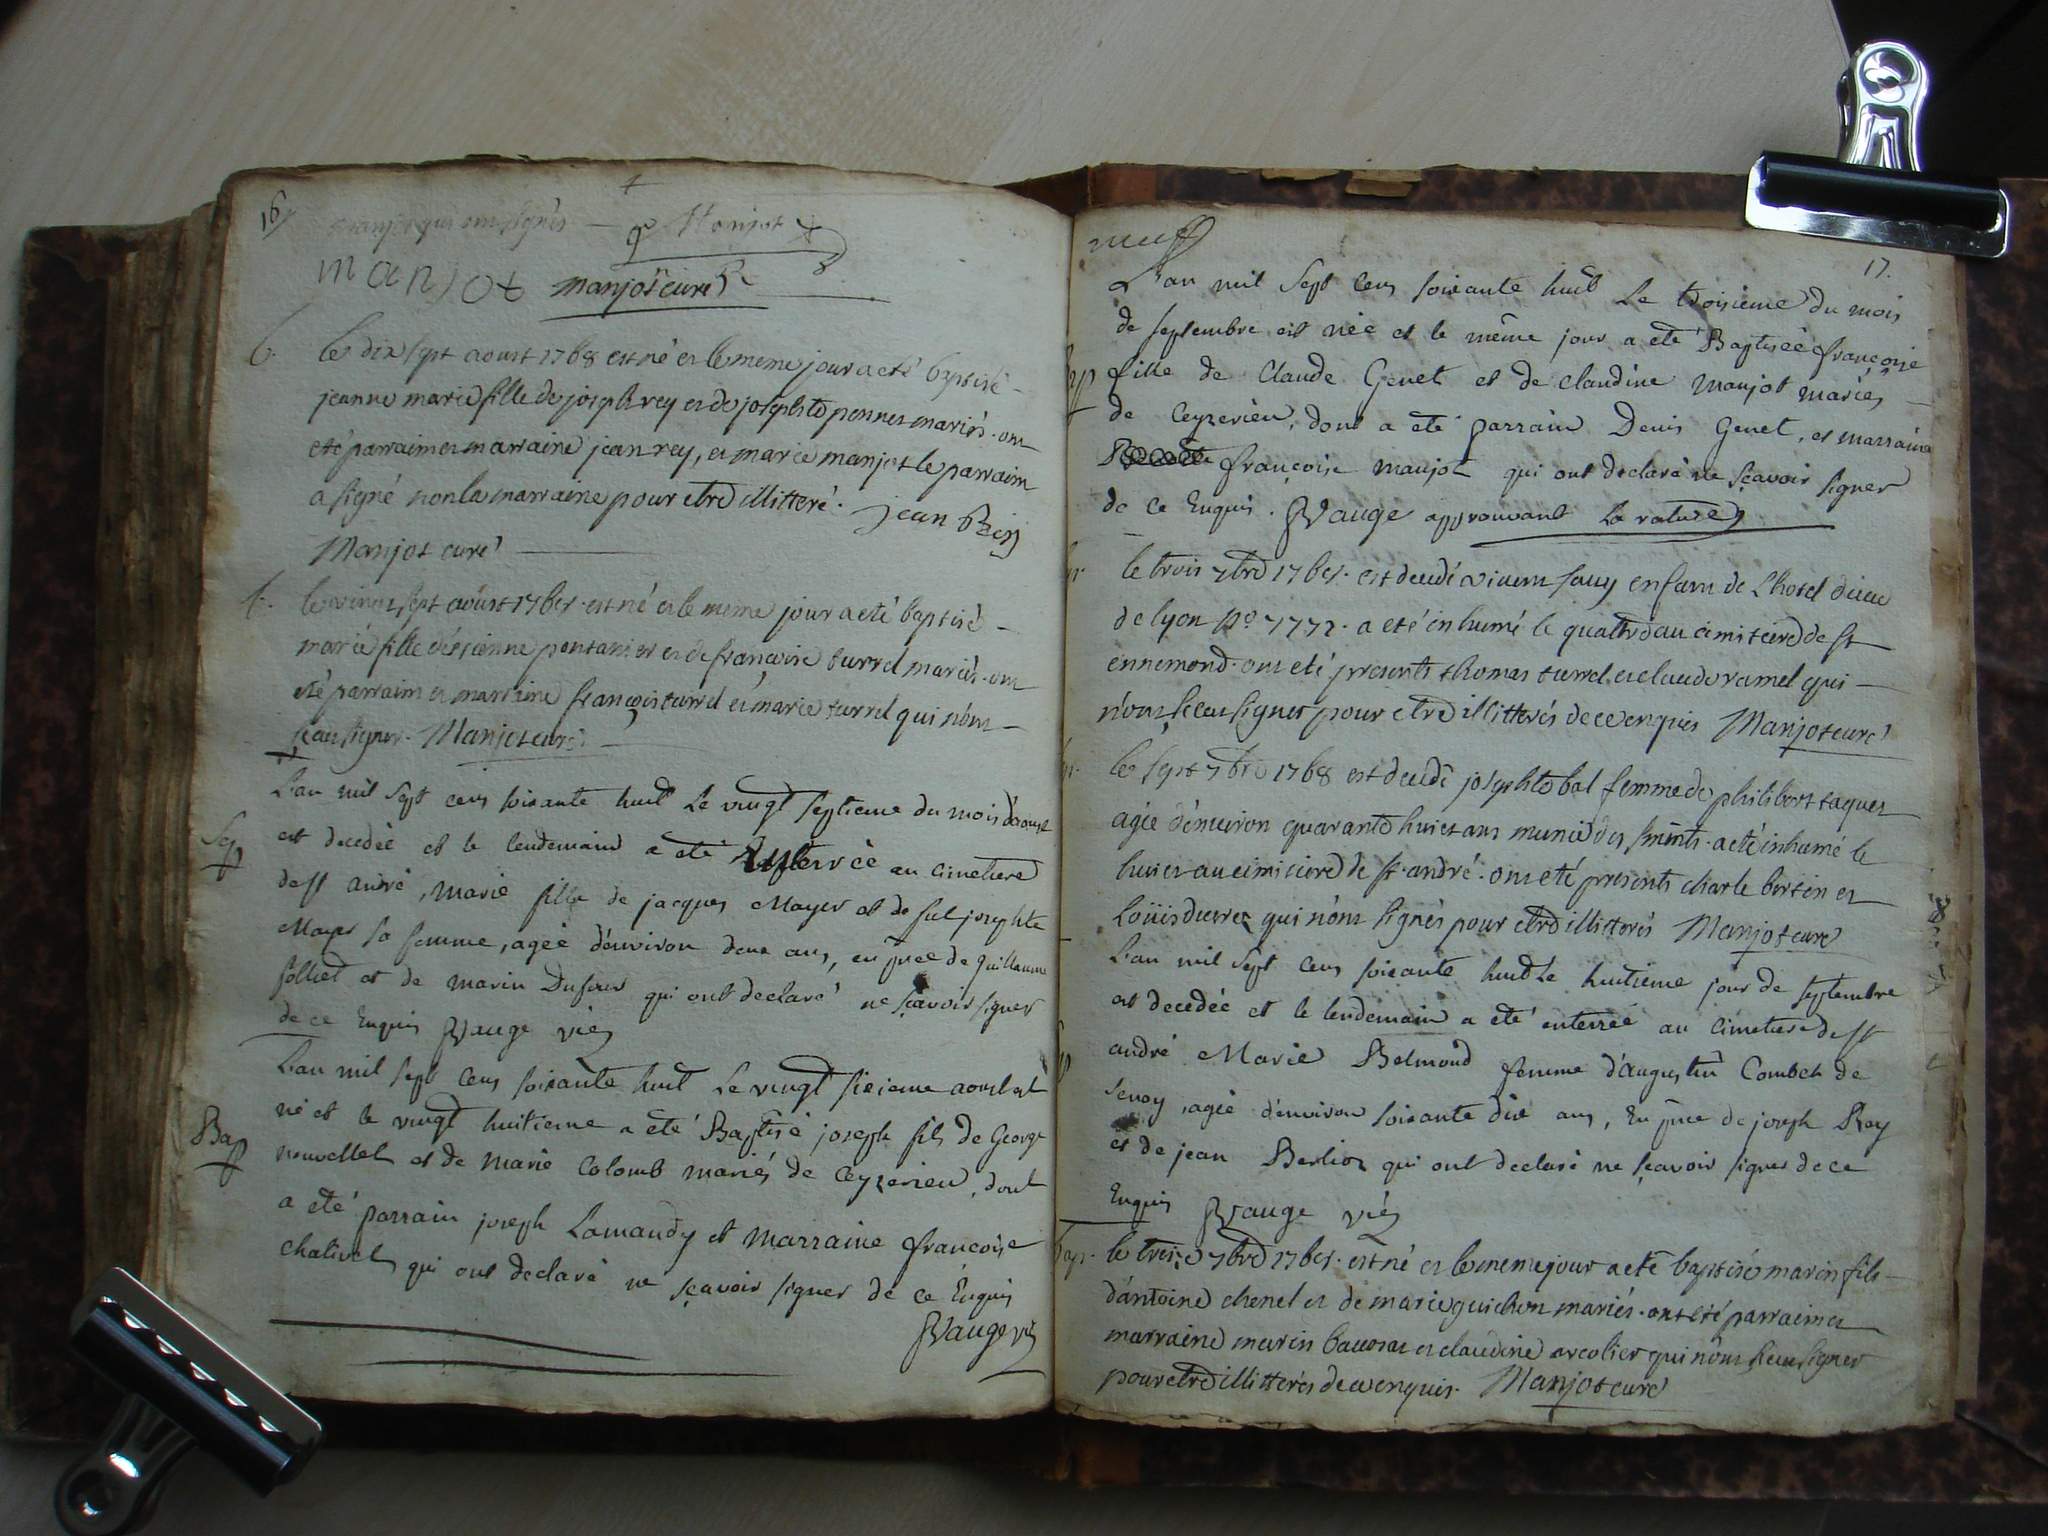 16
manjot qui ont signés — Manjot
manjot manjot curé
b. le dix sept aoust 1768 est né et le meme jour a eté baptisé
jeanne marie fille de joseph rey et de josephte pennet mariés. ont
eté parrain et marraine jean rey, et marie manjot le parrain
a signé non la marraine pour etre illitteré. jean Rey
Manjot curé
b. le vingt sept aoust 1768. est né et le meme jour a eté baptisé
marie fille d'estienne pontanier et de françoise turrel mariés. ont
eté parrain et marraine françois turrel et marie turrel qui n'ont
sçeu signer. Manjot curé
L'an mil sept cens soixante huit Le vingt septieme du mois d'aoust
Sep est decedée et le lendemain a eté Enterrée au cimetiere
de st andré, marie fille de jacques Mayer et de fue josephte
Mayer sa femme, agée d'environ deux ans, en pnce de guillaume
jolliet et de marin Dufour qui ont declaré ne sçavoir signer
de ce Enquis Vauge vic
L'an mil sept cens soixante huit Le vingt sixieme aoust est
né et le vingt huitieme a eté Baptisé joseph fils de George
Bap nouvellet et de marie Colomb mariés de Ceyzerieu, dont
a eté parrain joseph Lamandy et marraine françoise
chalivet qui ont declaré ne sçavoir signer de ce Enquis
Vauge vic
neuf
17.
L'an mil sept cens soixante huit Le troisieme du mois
de septembre est née et le même jour a eté Baptisée françoise
Bap fille de Claude Genet et de claudine manjot mariés
de Ceyzerieu, dont a eté parrain Denis Genet, et marraine
françoise manjot qui ont declaré ne sçavoir signer
de ce Enquis. Vauge approuvant la rature
le trois 7bre 1768. est decedé vincent enfant de L'hotel dieu
de lyon no 7772. a eté inhumé le quattre au cimitiere de st
ennemond. ont eté presents thomas turrel, et claude ramel qui
n'ont sceu signer pour etre illitterés de ce enquis Manjot curé
le sept 7bre 1768 est decedé josephte bal femme de philibert taquet
agée d'environ quarante huict ans munie des sments. a eté inhumé le
huict au cimitiere de st. andré. ont eté presents charle bertin et
Loüis durret qui n'ont signés pour etre illitterés Manjot curé
L'an mil sept cens soixante huit Le huitieme jour de septembre
est decedée et le lendemain a eté enterrée au cimetiere de st
andré Marie Belmond femme d'augustin Combet de
senoy, agée d'environ soixante dix ans, En pnce de joseph Rey
et de jean Berlioz qui ont declaré ne sçavoir signer de ce
Enquis Vauge vic
bap. le treize 7bre 1768. est né et le meme jour a eté baptisé marin fils
d'antoine chenel et de marie guichon mariés. ont eté parrain et
marraine marin et claudine arcolier qui n'ont sceu signer
pour etre illitterés de ce enquis. Manjot curé